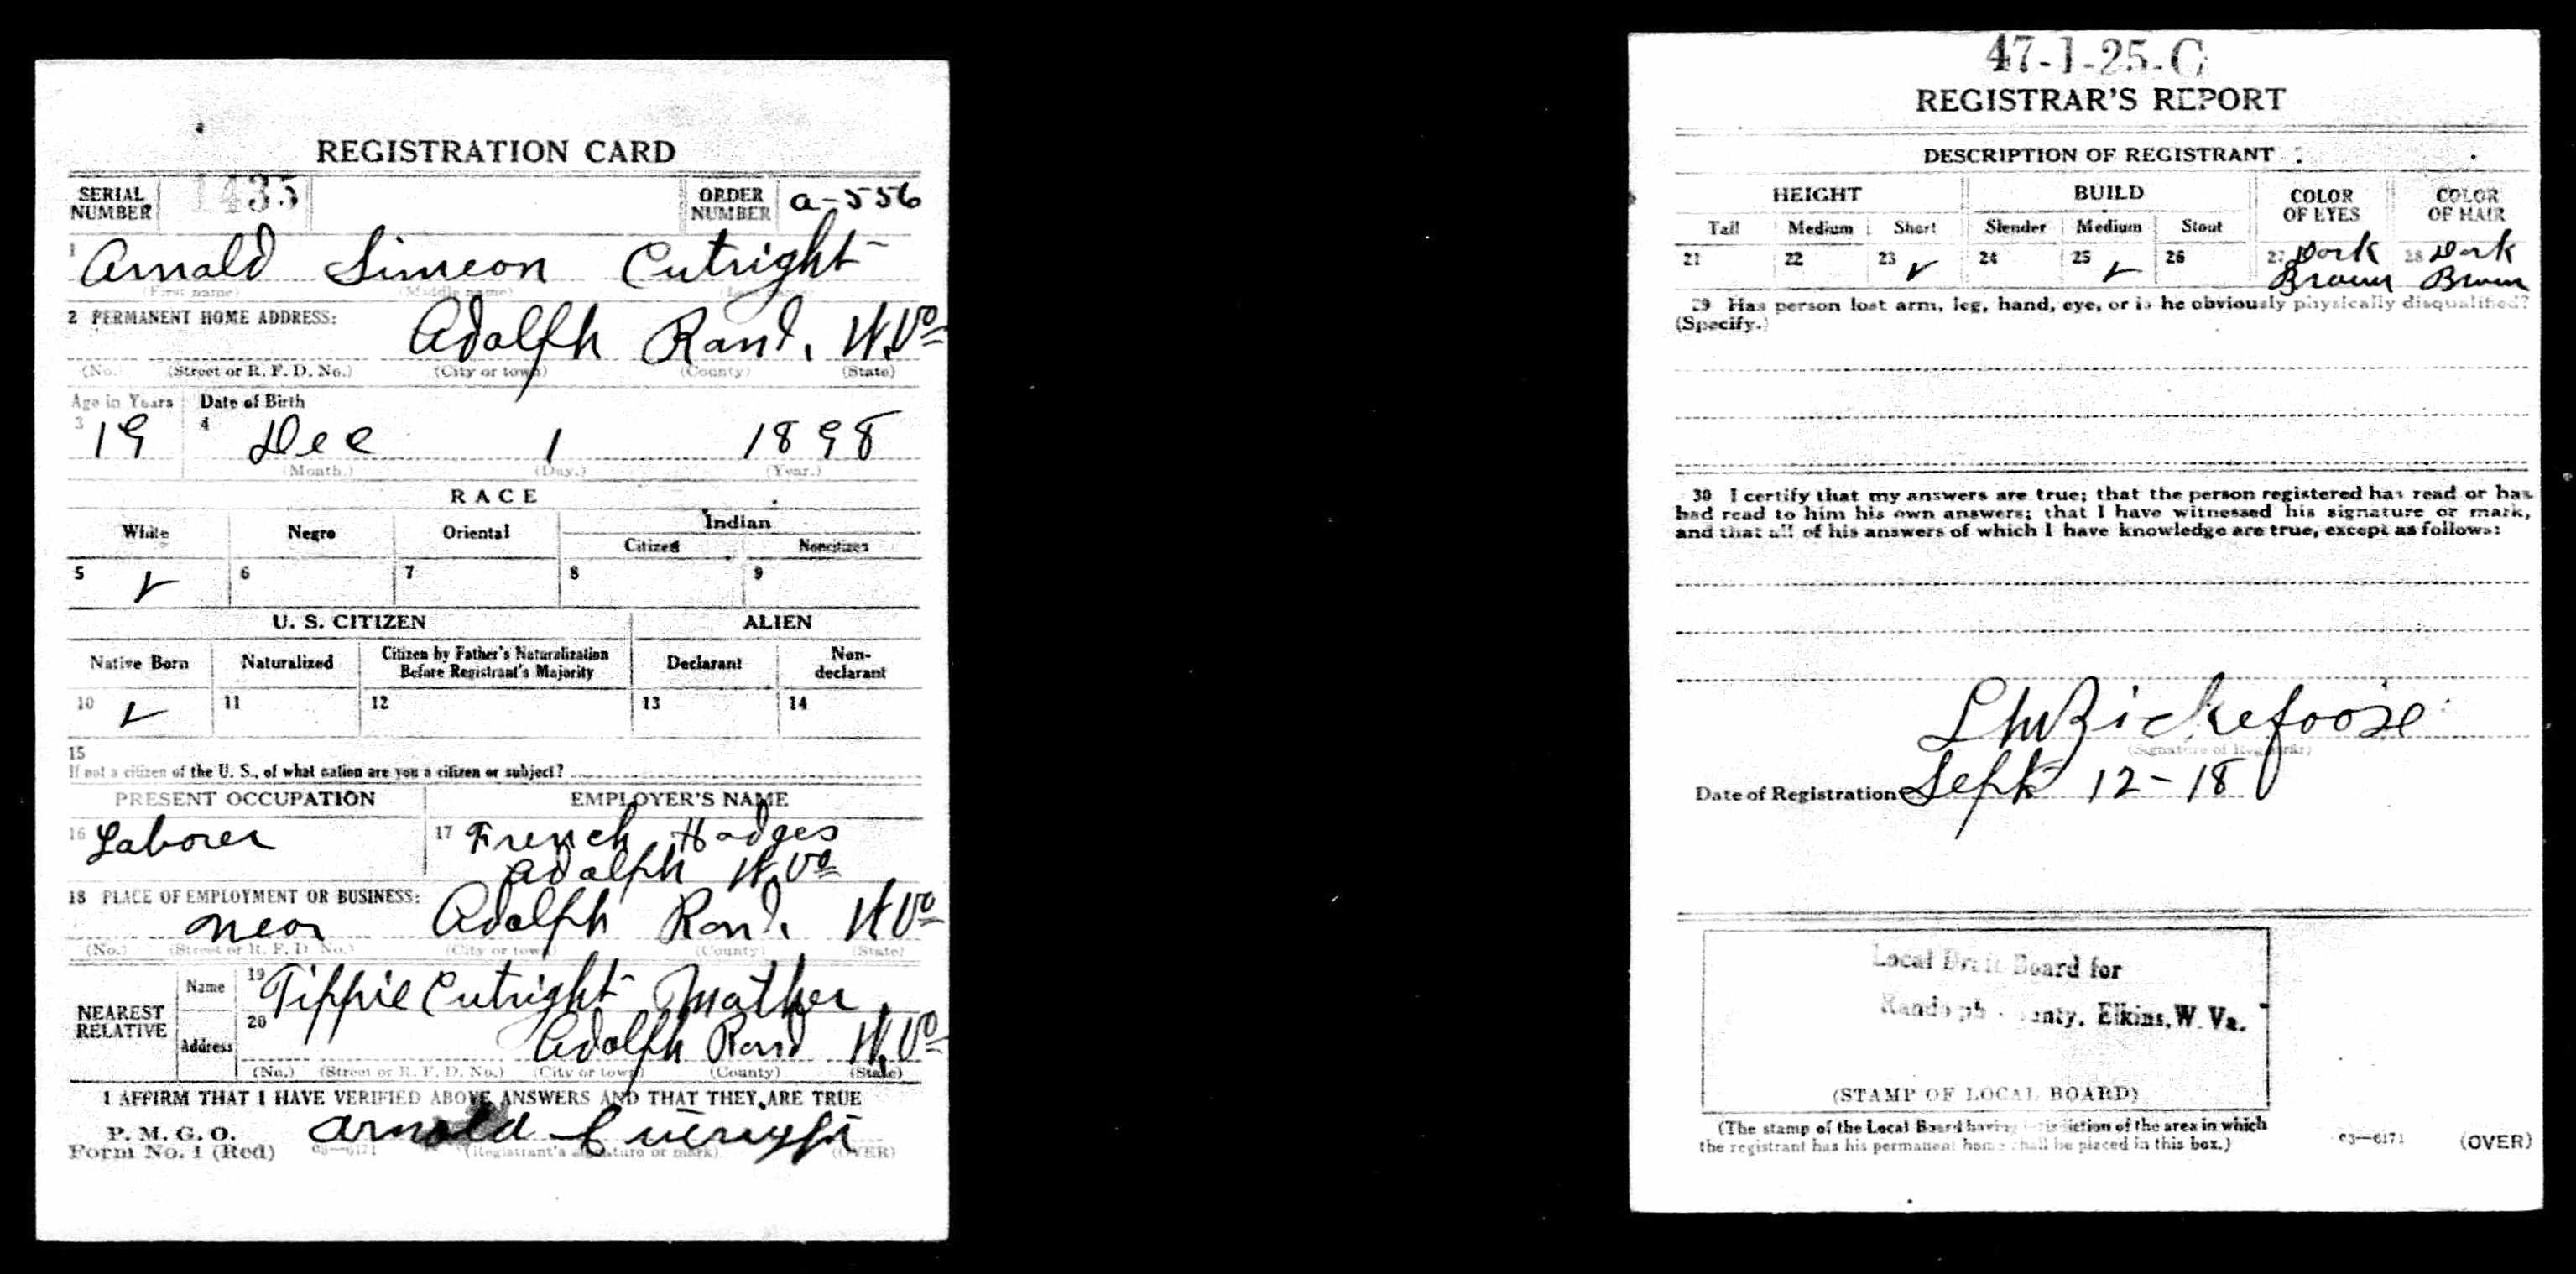 REGISTRATION CARD
SERIAL NUMBER 1435 ORDER NUMBER a-556
1 Arnald Simeon Cutright
(First name) (Middle name) (Last name)
2 PERMANENT HOME ADDRESS: Adolph Rand. W.Va
(No.) (Street or R. F. D. No.) (City or town) (County) (State)
Age in Years Date of Birth
3 19 4 Dec 1 1898
(Month.) (Day.) (Year.)
RACE
White Negro Oriental Indian
Citizen Noncitizen
5 ✓ 6 7 8 9
U. S. CITIZEN ALIEN
Native Born Naturalized Citizen by Father's Naturalization Before Registrant's Majority Declarant Non-declarant
10 ✓ 11 12 13 14
15
If not a citizen of the U. S., of what nation are you a citizen or subject?
PRESENT OCCUPATION EMPLOYER'S NAME
16 Laborer 17 French Hodges
Adolph W.Va
18 PLACE OF EMPLOYMENT OR BUSINESS:
near Adolph Rand. W.Va
(No.) (Street or R. F. D. No.) (City or town) (County) (State)
NEAREST RELATIVE
Name 19 Tippie Cutright Mother
Address 20 Adolph Rand W.Va
(No.) (Street or R. F. D. No.) (City or town) (County) (State)
I AFFIRM THAT I HAVE VERIFIED ABOVE ANSWERS AND THAT THEY ARE TRUE
P. M. G. O.
Form No. 1 (Red) 03—6171 Arnold Cutright
(Registrant's signature or mark) (OVER)
47-1-25-C
REGISTRAR'S REPORT
DESCRIPTION OF REGISTRANT
HEIGHT BUILD COLOR OF EYES COLOR OF HAIR
Tall Medium Short Slender Medium Stout
21 22 23 ✓ 24 25 ✓ 26 27 Dark Brown 28 Dark Brown
29 Has person lost arm, leg, hand, eye, or is he obviously physically disqualified?
(Specify.)
30 I certify that my answers are true; that the person registered has read or has
had read to him his own answers; that I have witnessed his signature or mark,
and that all of his answers of which I have knowledge are true, except as follows:
Zickefoose
(Signature of Registrar)
Date of Registration Sept 12-18
Local Draft Board for
Randolph County, Elkins, W. Va.
(STAMP OF LOCAL BOARD)
(The stamp of the Local Board having jurisdiction of the area in which
the registrant has his permanent home shall be placed in this box.)
03—6171 (OVER)